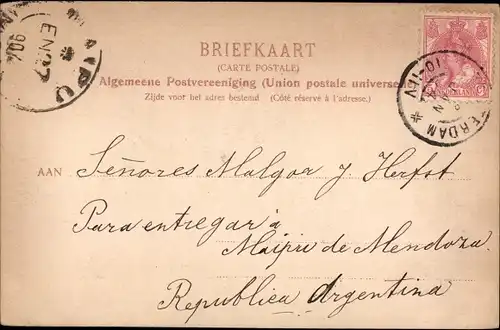 BRIEFKAART
(CARTE POSTALE)
Algemeene Postvereeniging (Union postale universe
Zijde voor het adres bestemd (Côté réservé à l'adresse.)
AAN
Señores Malgor y Herfst
Para entregar á
Maipú de Mendoza.
Republica Argentina
EN 27
906